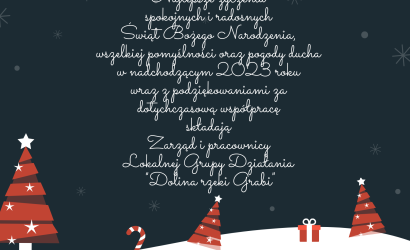 Najlepsze życzenia
spokojnych i radosnych
Świąt Bożego Narodzenia,
wszelkiej pomyślności oraz pogody ducha
w nadchodzącym 2023 roku
wraz z podziękowaniami za
dotychczasową współpracę
składają
Zarząd i pracownicy
Lokalnej Grupy Działania
"Dolina rzeki Grabi"